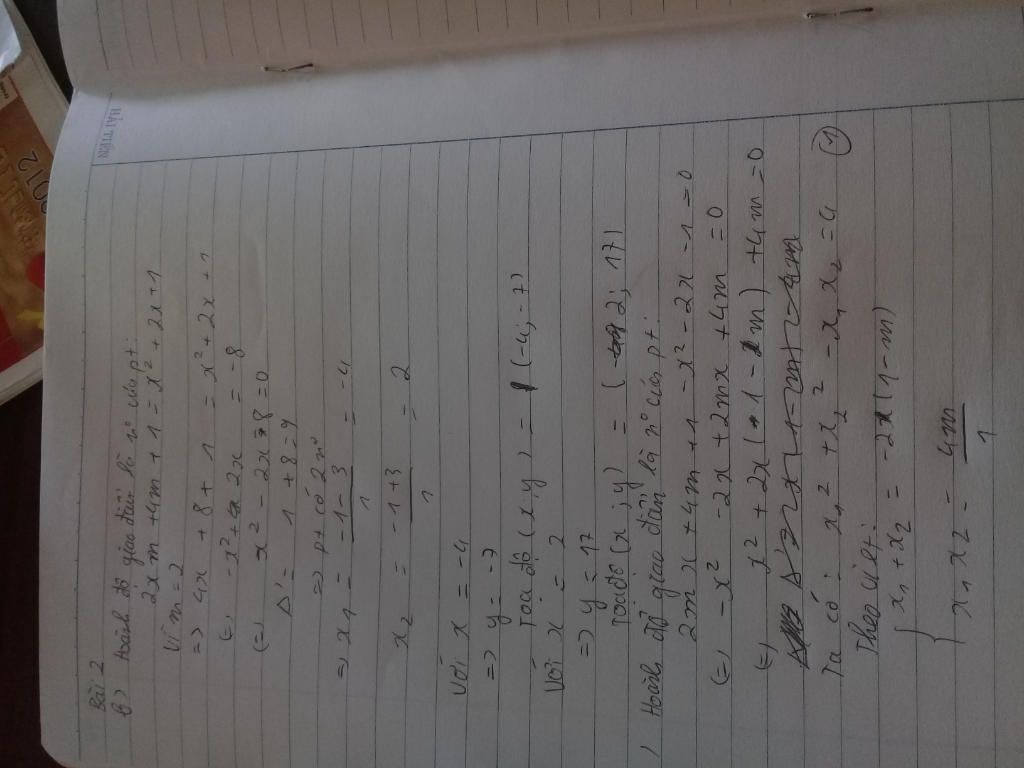 HẢI TIẾN
2012
Bài 2
b) Hoành độ giao điểm là n° của pt:
2xm + 4m + 1 = x² + 2x + 1
Vì m = 2
=> 4x + 8 + 1 = x² + 2x + 1
(=) -x² + 2x = -8
(=) x² - 2x - 8 = 0
Δ' = 1 + 8 = 9
=> pt có 2 n°
=> x1 = -1-3/1 = -4
x2 = -1+3/1 = 2
Với x = -4
=> y = -7
Tọa độ (x, y) = (-4; -7)
Với x = 2
=> y = 17
Tọa độ (x; y) = (2; 17)
, Hoành độ giao điểm là n° của pt:
2mx + 4m + 1 - x² - 2x - 1 = 0
(=) -x² - 2x + 2mx + 4m = 0
(=) x² + 2x(1 - m) + 4m = 0
Ta có: x1² + x2² - x1 x2 = 4 (1)
Theo viét:
{ x1 + x2 = -2x(1-m)
x1 x2 = 4m/1